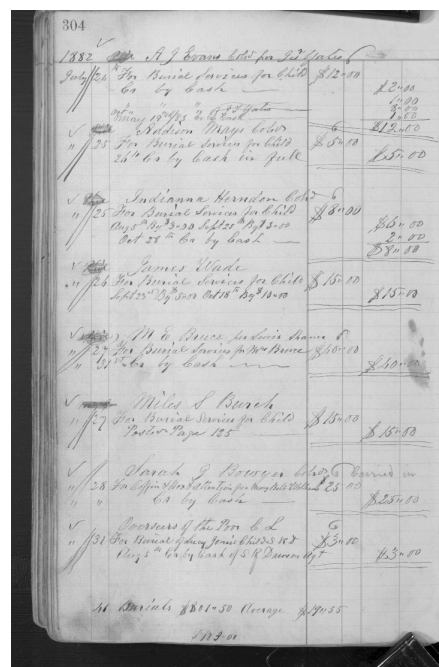 304
1882 A J Evans Cold for Jas Yates
July 26 For Burial Services for Child $12"00
Cr by Cash $2"00
1"00
May 19th/83 " Cr by Cash
$12"00
Addison Mays Cold
" 25 For Burial Services for Child $5"00
26th Cr by Cash in full $5"00
Indianna Herndon Cold
" 25 For Burial Services for Child $8"00
Aug 5th By $3"00 Sept 25th By $3"00 $6"00
Oct 28th Cr by Cash 2"00
$8"00
James Wade
" 26 For Burial Services for Child $15"00
Sept 23rd By $5"00 Oct 18th By $10"00 $15"00
M E Bruce for
" 27 For Burial Services for Mrs Bruce $40"00
" 31st Cr by Cash $40"00
Miles S Burch
" 27 For Burial Services for Child $15"00
Posted Page 125 $15"00
Sarah J Bowyer Cold Carried in
" 28 For Coffin & Box & attention for Mary Bell $25"00
" " Cr by Cash $25"00
Overseers of the Poor C L
" 31 For Burial of Lucy Jones Child $3"00
Aug 5th Cr by Cash of S R Dawson Agt $3"00
41 Burials $801"50 Average $19"55